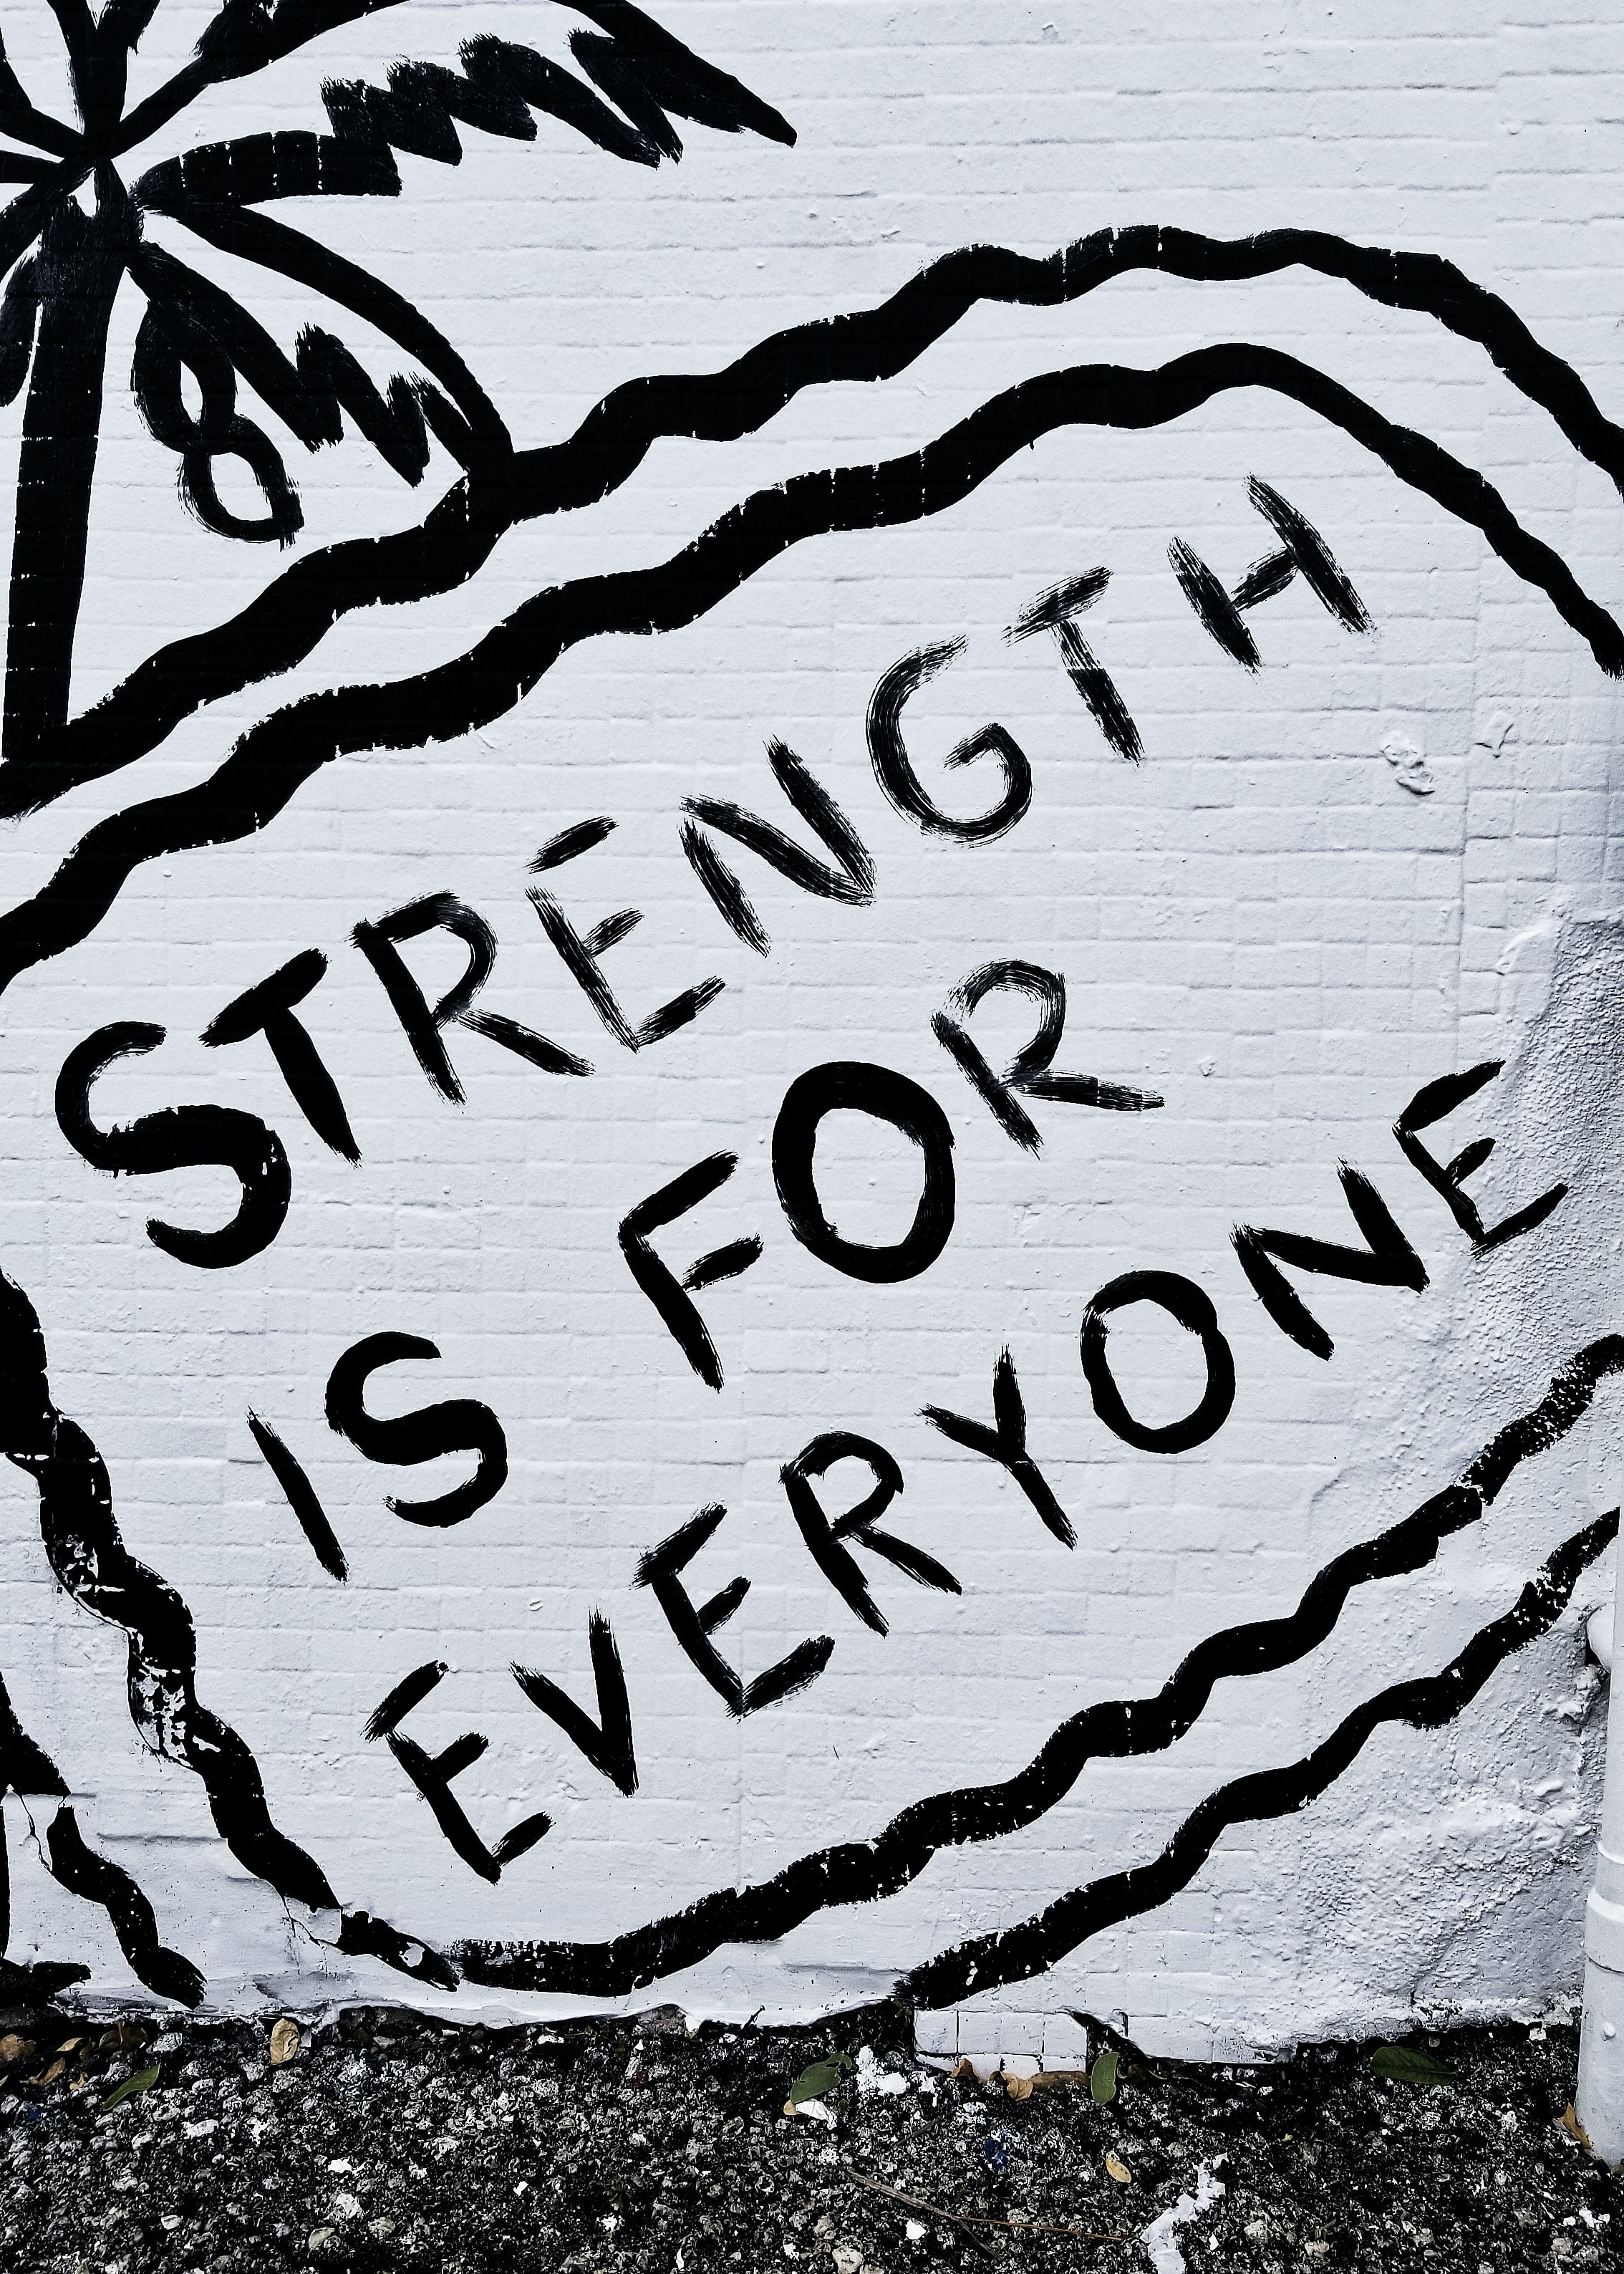 STRENGTH
IS FOR
EVERYONE